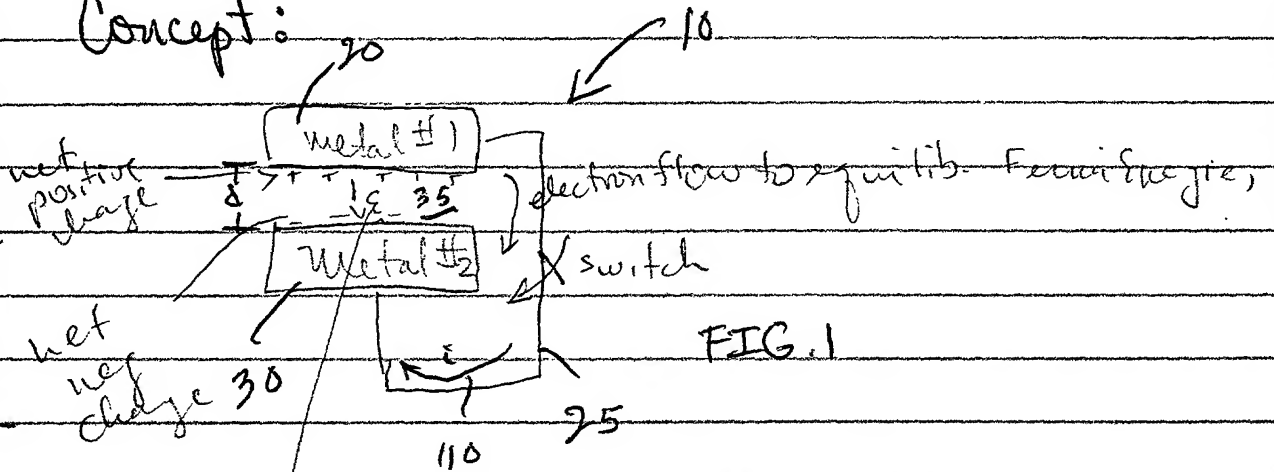 Concept:
20
10
metal #1
net
positive
charge
d
+ + + + +
electron flow to equilib. Fermi Energies,
- - - -
E
35
Metal #2
switch
net
neg
charge
30
i
FIG. 1
25
110